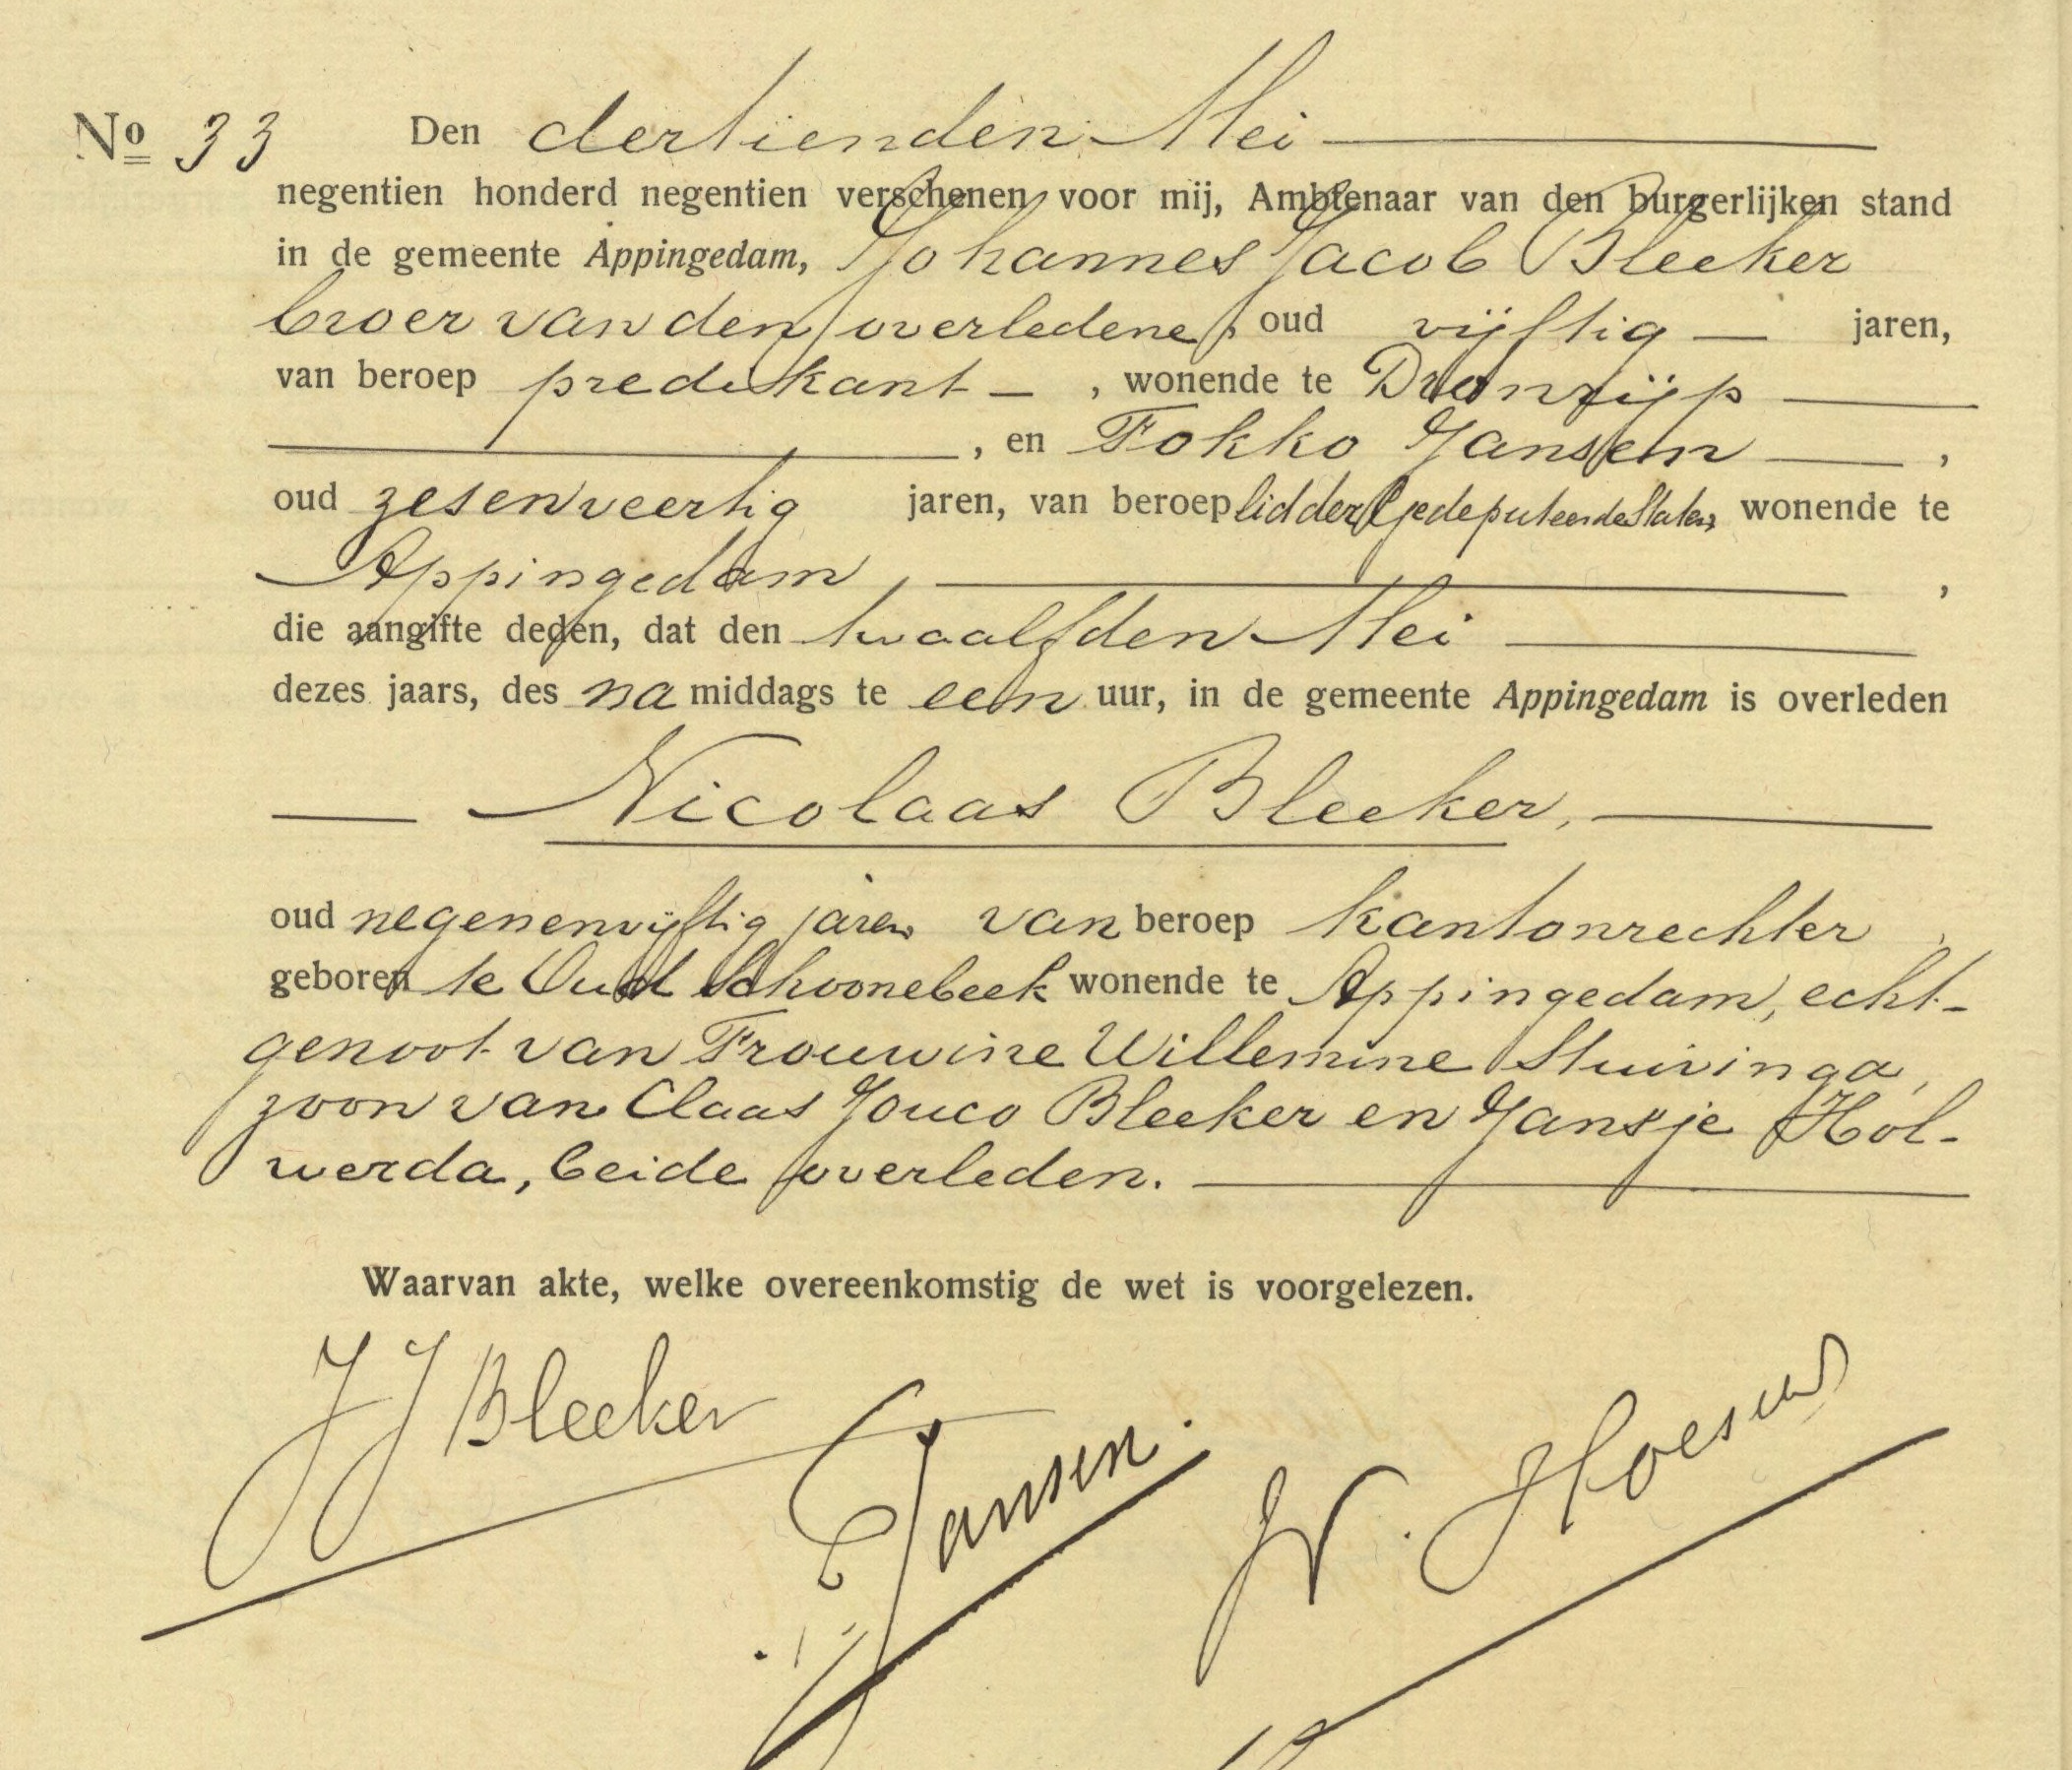 No 33 Den dertienden Mei
negentien honderd negentien verschenen voor mij, Ambtenaar van den burgerlijken stand
in de gemeente Appingedam, Johannes Jacob Bleeker
broer van den overledene, oud vijftig jaren,
van beroep predikant, wonende te Dronrijp
, en Fokko Jansen,
oud zesenveertig jaren, van beroep lid der Gedeputeerde Staten, wonende te
Appingedam, ,
die aangifte deden, dat den twaalfden Mei
dezes jaars, des na middags te een uur, in de gemeente Appingedam is overleden
Nicolaas Bleeker,
oud negenenvijftig jaren van beroep kantonrechter,
geboren te Oud Schoonebeek wonende te Appingedam, echt-
genoot van Frouwine Willemine Stuivinga,
zoon van Claas Jouco Bleeker en Jansje Hol-
werda, beide overleden.
Waarvan akte, welke overeenkomstig de wet is voorgelezen.
JJ Bleeker
F Jansen.